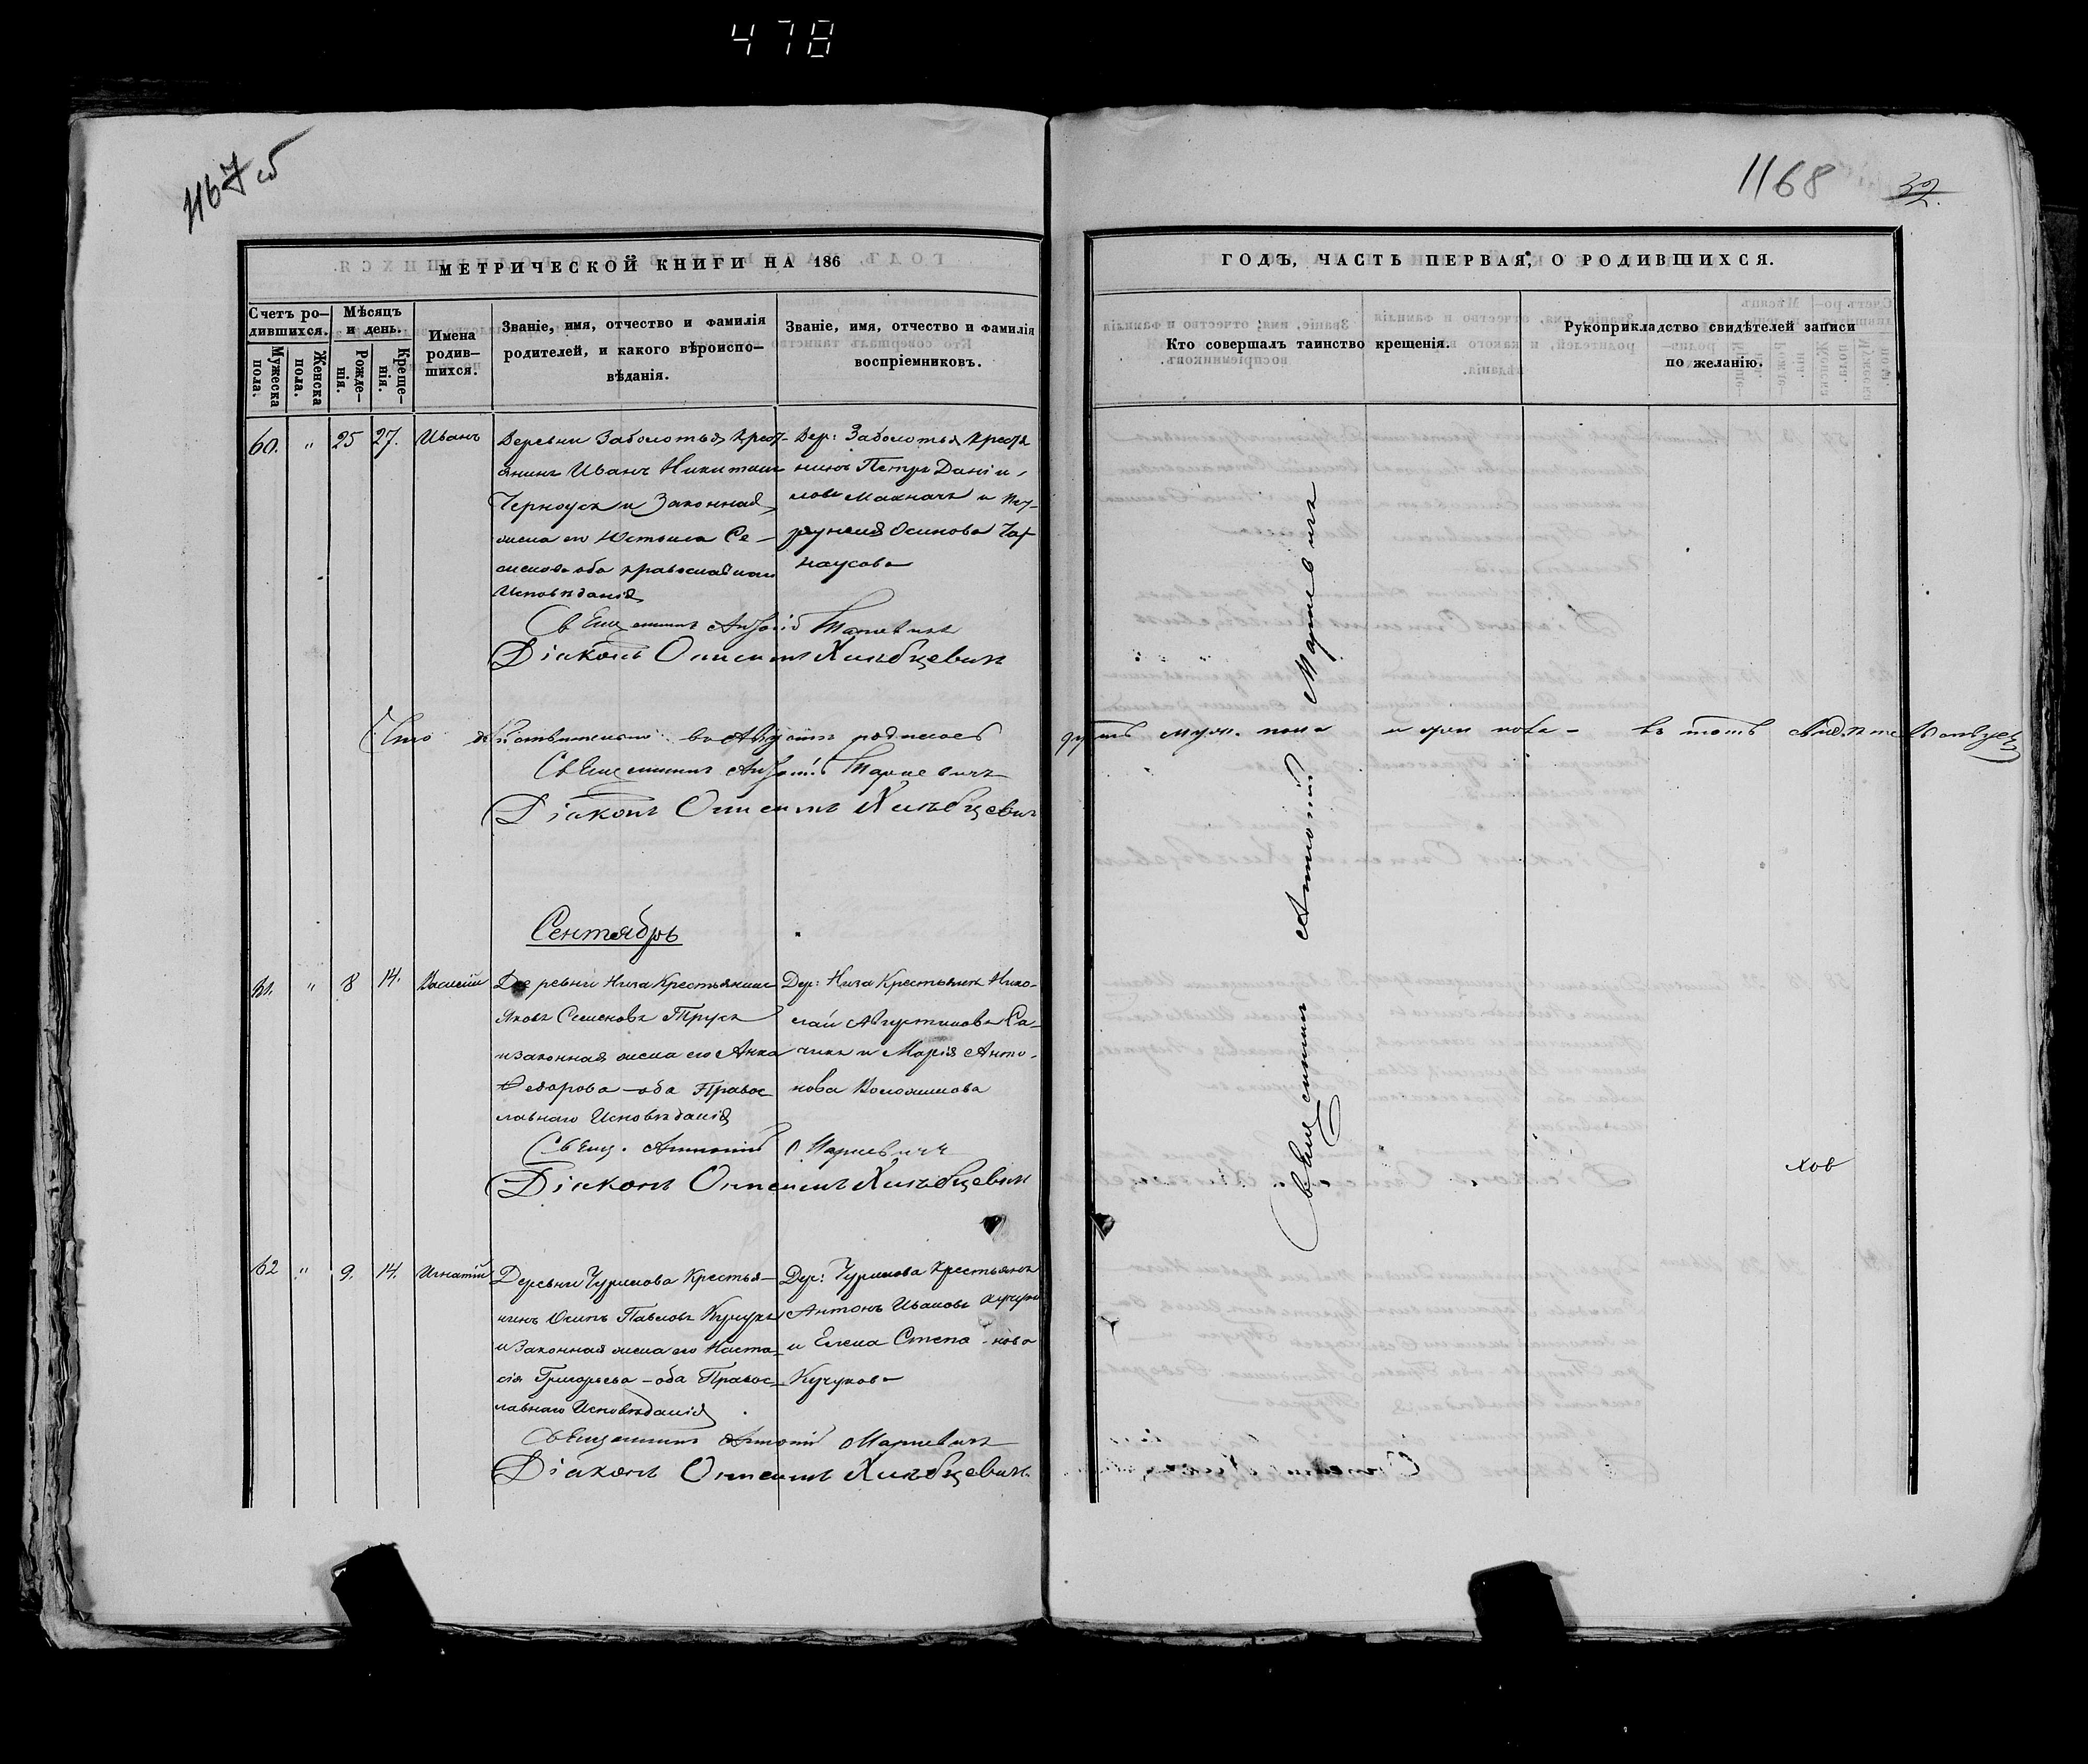 478
1167 об
1168
32.
МЕТРИЧЕСКОЙ КНИГИ НА 186
ГОДЪ, ЧАСТЬ ПЕРВАЯ, О РОДИВШИХСЯ.
Счетъ ро–
дившихся.
Мужеска
пола.
Женска
пола.
Мѣсяцъ
и день.
Рожде–
нія.
Креще–
нія.
Имена
родив–
шихся.
Званіе, имя, отчество и фамилія
родителей, и какого вѣроиспо–
вѣданія.
Званіе, имя, отчество и фамилія
воспріемниковъ.
Кто совершалъ таинство крещенія.
Рукоприкладство свидѣтелей записи
по желанію.
60. " 25 27. Иванъ
Деревни Заболотья крест-
янинъ Иванъ Никитинъ
Черноусъ и Законная
жена его Устинья Се-
менова оба православнаго
Исповѣданія
Дер: Заболотья крестья
нинъ Петръ Даніи-
ловъ Махначъ и
Осипова Чар
наусова
Священникъ Антоній Марцевичъ
Діаконъ Онисимъ Хлѣбцевичъ
Что дѣйствительно въ Августѣ родилось
муж. пола и жен пола - въ томъ
Священникъ Антоній Марцевичъ
Діаконъ Онисимъ Хлѣбцевичъ
Сентябрь
61. " 8 14. Василій
Деревни Низа Крестьянинъ
Яковъ Семеновъ Трусъ
и законная жена его Анна
Федорова – оба Правос-
лавнаго Исповѣданія
Дер: Низа Крестьянин Нико-
лай Августиновъ
и Марія Анто-
нова
Свящ. Антоній Марцевичъ
Діаконъ Онисимъ Хлѣбцевичъ
62 " 9. 14. Игнатій
Деревни Чурилова Крестья-
нинъ Осипъ Павловъ Кучукъ
и Законная жена его Наста-
сія Григорьева – оба Правос-
лавнаго Исповѣданія
Дер: Чурилова Крестьянинъ
Антонъ Ивановъ Кучукъ
и Елена Степанова
Кучукова
Священникъ Антоній Марцевичъ
Діаконъ Онисимъ Хлѣбцевичъ.
Священникъ Антоній Марцевичъ
хов